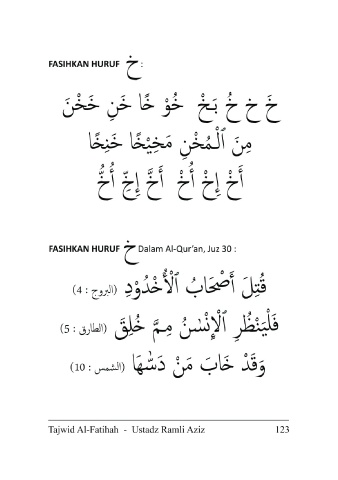 FASIHKAN HURUF خ :
خَ خِ خُ بَخْ خُوْ خًا خَنِ خَخْنَ
مِنَ ٱلْمُخْنِ مَخِيْخًا خَنِخًا
أَخْ إِخْ أُخْ أَخَّ إِخِّ أُخُّ
FASIHKAN HURUF خ Dalam Al-Qur'an, Juz 30 :
قُتِلَ أَصْحَابُ ٱلْأُخْدُوْدِ (البروج : 4)
فَلْيَنْظُرِ ٱلْإِنْسٰنُ مِمَّ خُلِقَ (الطارق : 5)
وَقَدْ خَابَ مَنْ دَسّٰهَا (الشمس : 10)
Tajwid Al-Fatihah - Ustadz Ramli Aziz 123